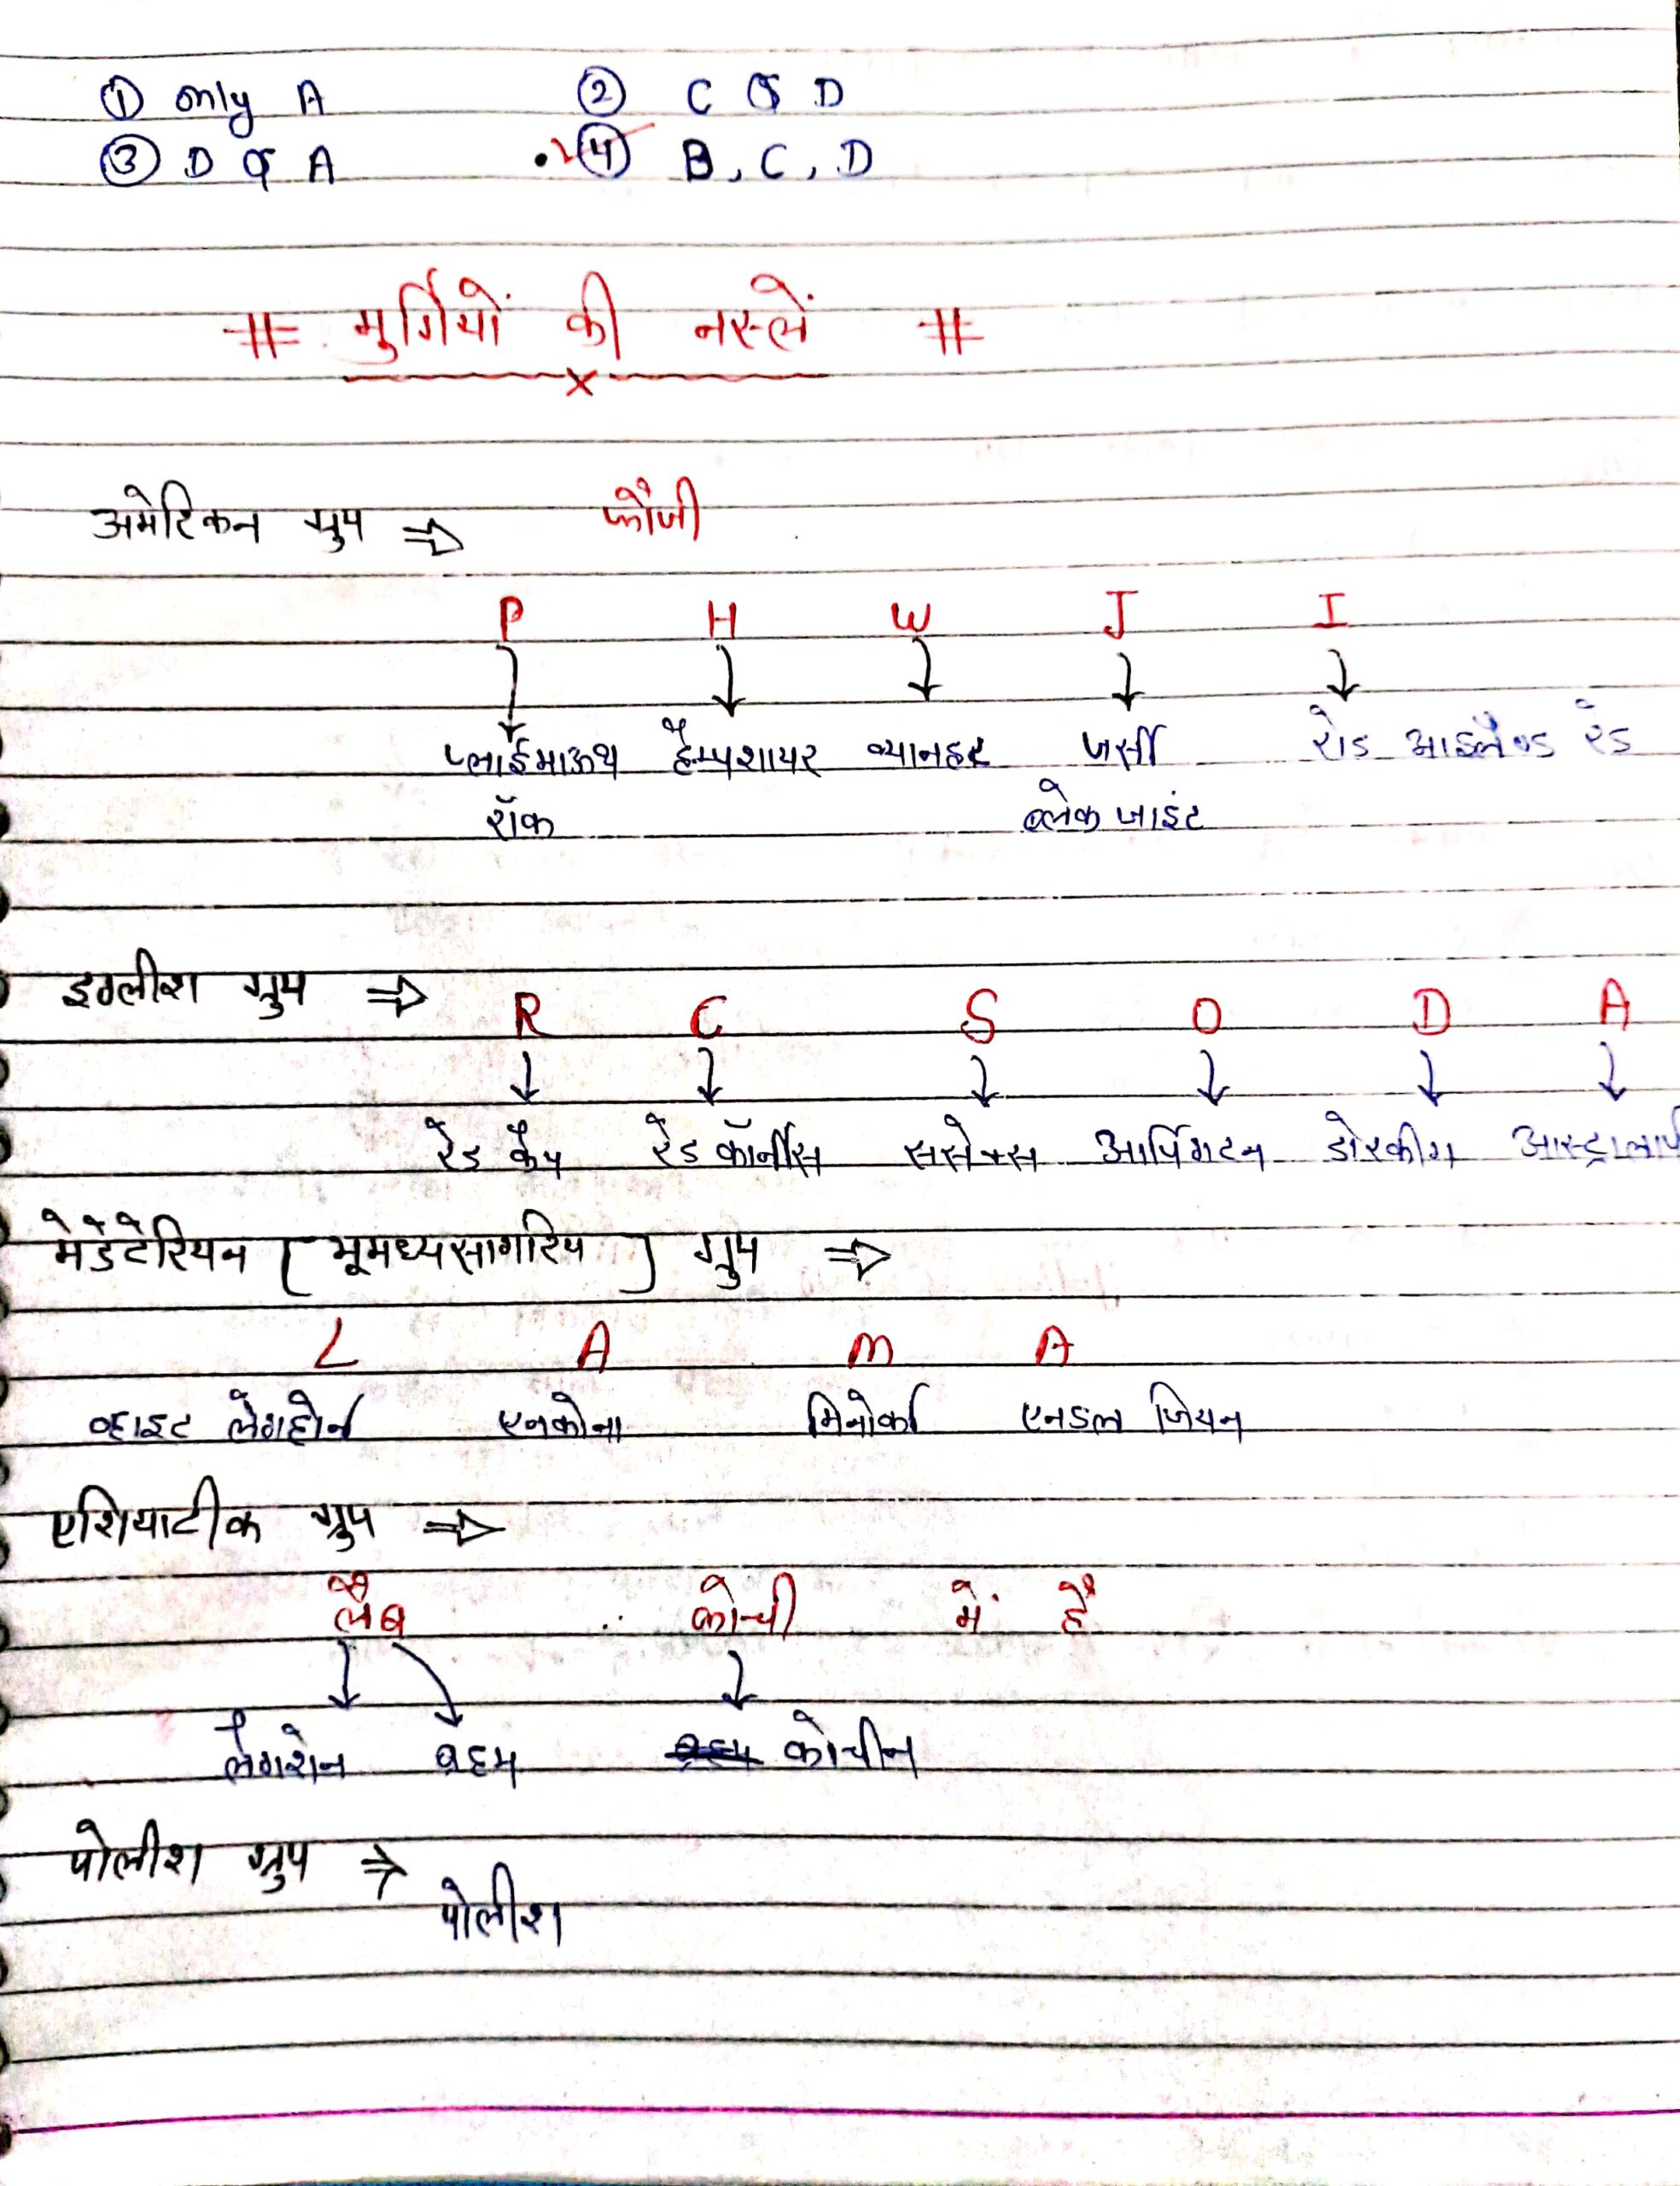 ① only A ② C & D
③ D & A ④ B, C, D
# मुर्गियों की नस्लें #
अमेरिकन ग्रुप ⇒ फौजी
P H W J I
प्लाईमाऊथ हैम्पशायर व्यानहट जर्सी रोड आइलैण्ड रेड
रॉक ब्लेक जाइंट
इग्लीश ग्रुप ⇒ R C S O D A
रेड कैप रेड कॉर्नीस ससेक्स आर्पिगटन डोरकीग आस्ट्रालार्प
मेडेटेरियन [ भूमध्यसागरिय ] ग्रुप ⇒
L A M A
व्हाइट लेगहोर्न एनकोना मिनोर्का एनडल जियन
एशियाटीक ग्रुप ⇒
लैब कोची में है
लैगशेन ब्रहम कोचीन
पोलीश ग्रुप ⇒
पोलीश